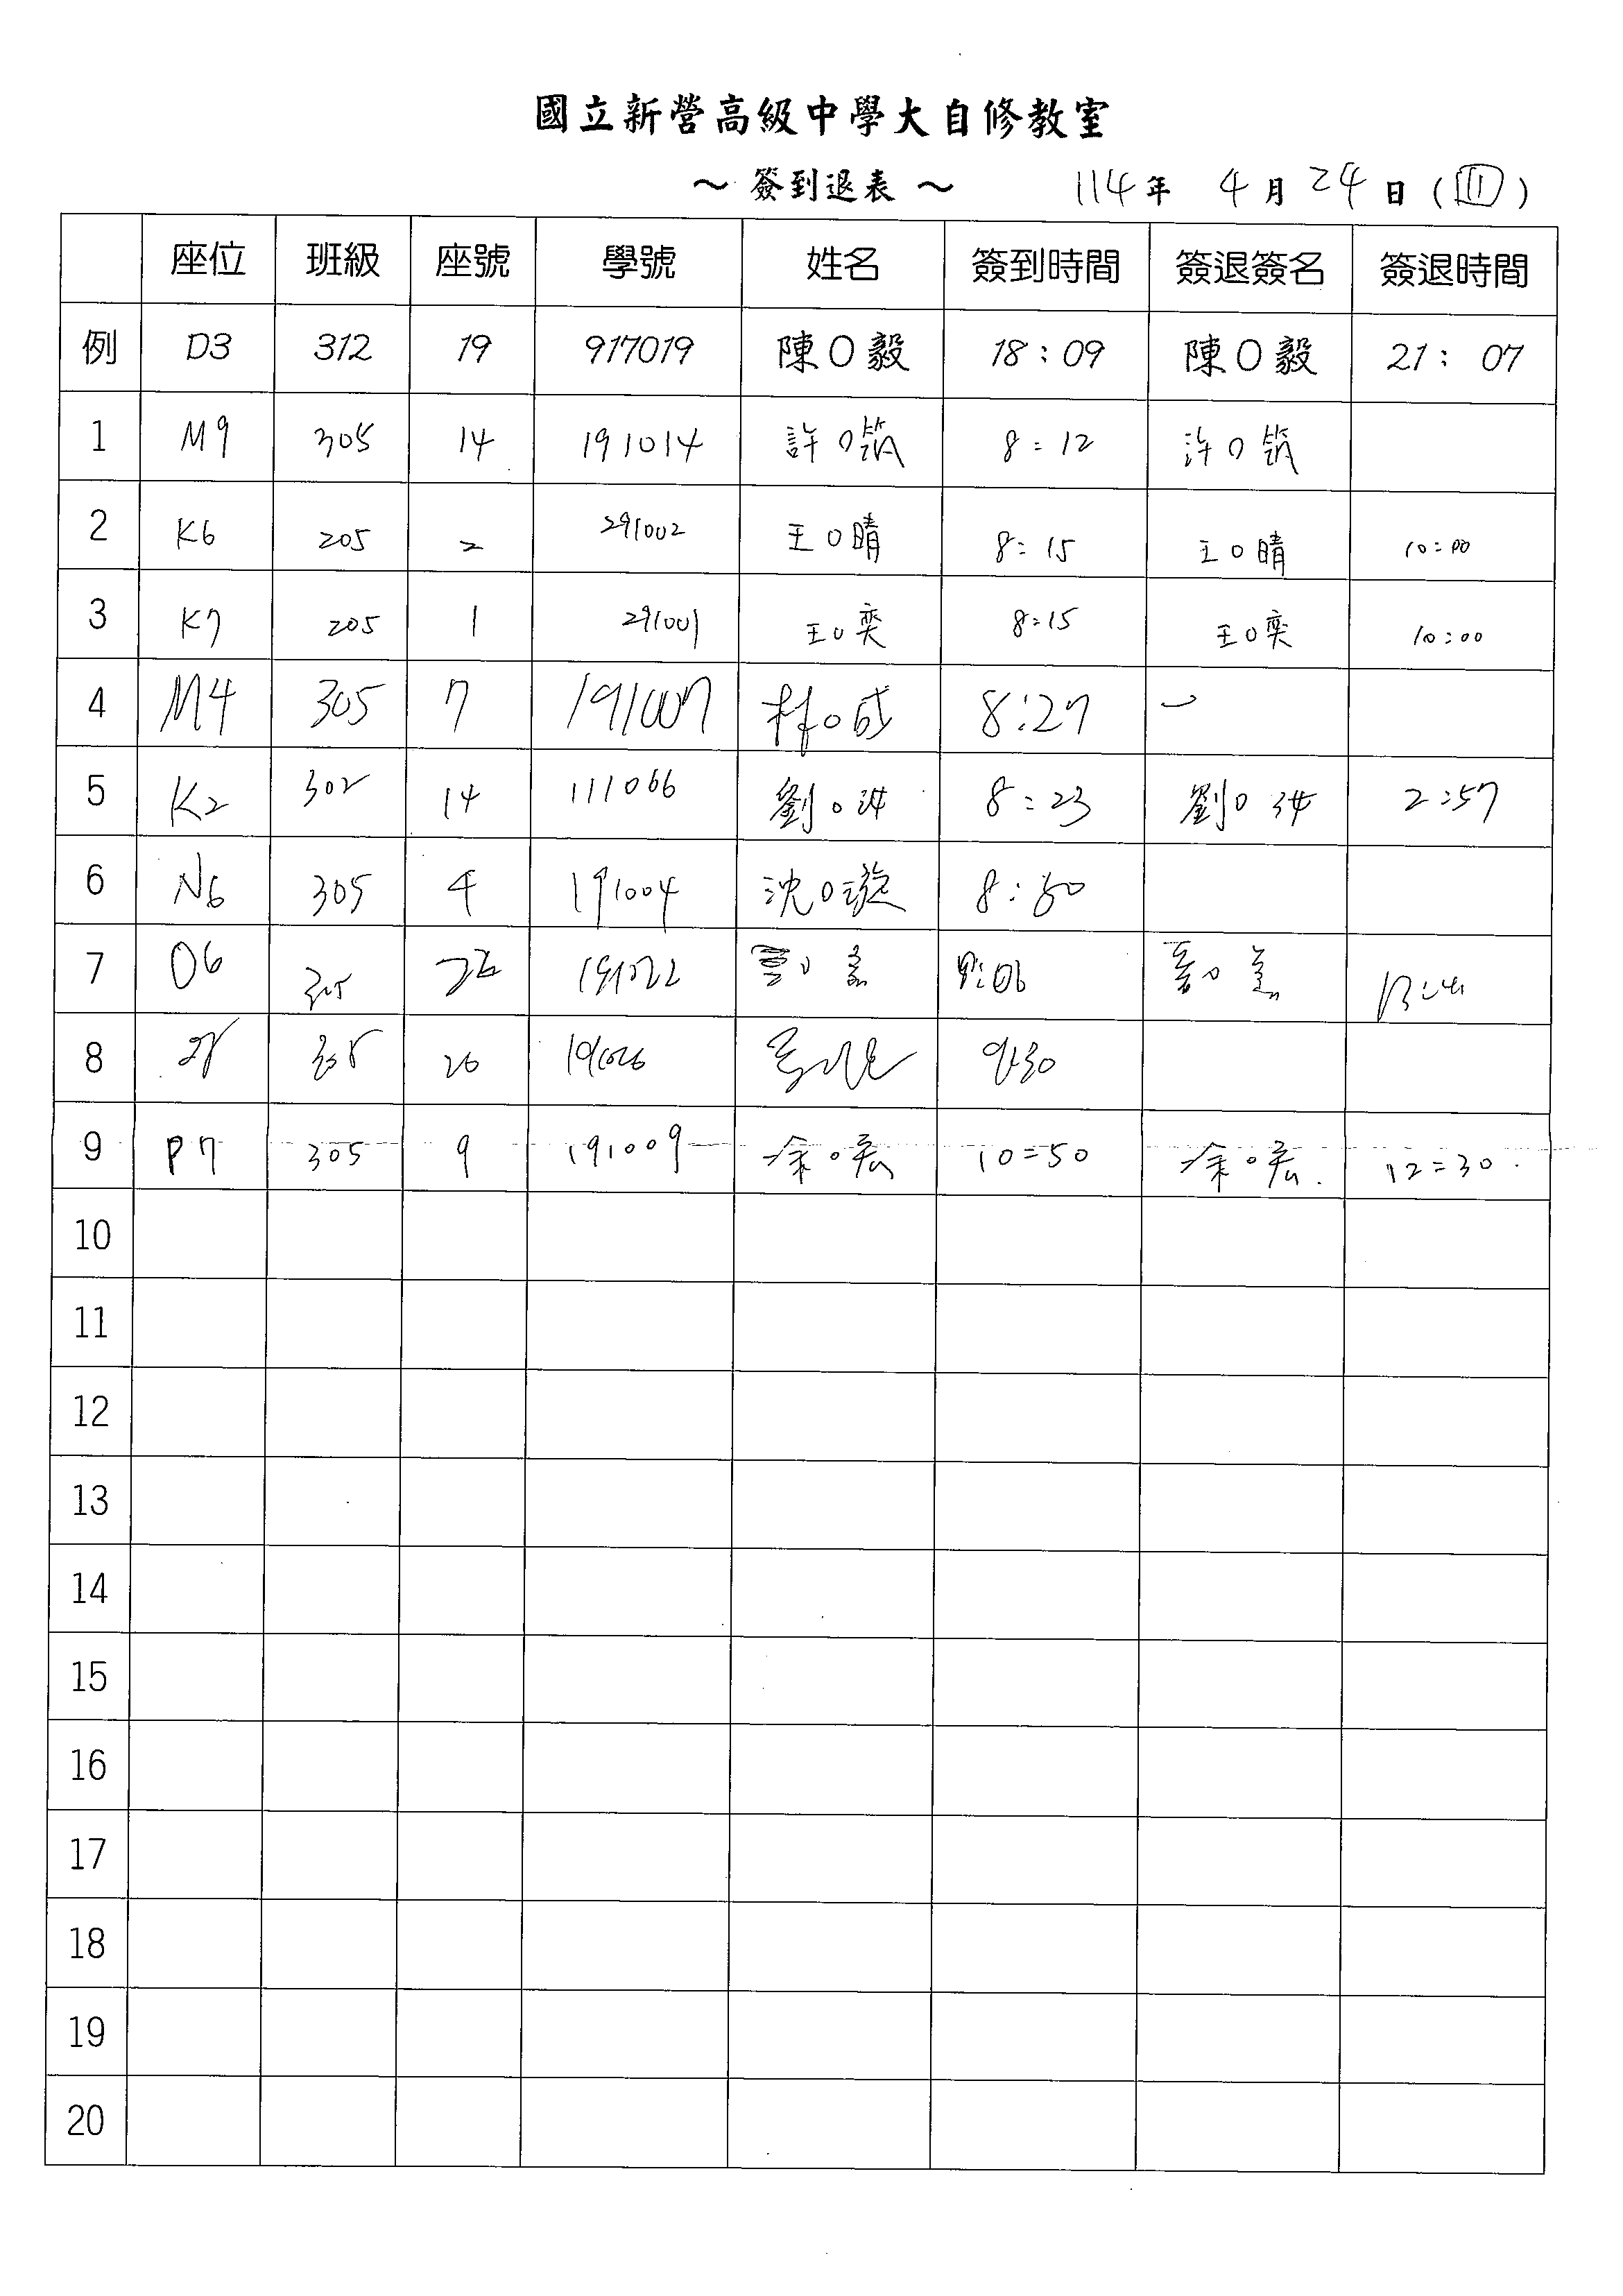 國立新營高級中學大自修教室
～ 簽到退表 ～ 114年 4月24日(四)
座位 班級 座號 學號 姓名 簽到時間 簽退簽名 簽退時間
例 D3 312 19 917019 陳O毅 18:09 陳O毅 21:07
1 M9 305 14 191014 許O筑 8:12 許O筑
2 K6 205 2 291002 王O晴 8:15 王O晴 10:00
3 K7 205 1 291001 王O奕 8:15 王O奕 10:00
4 M4 305 7 191007 林O成 8:27
5 K2 302 14 111066 劉O 8:23 劉O 2:57
6 N6 305 4 191004 沈O璇 8:50
7 O6 305 22 191022
8 305 26 191026 9:30
9 P7 305 9 191009 涂O宏 10:50 涂O宏 12:30
10
11
12
13
14
15
16
17
18
19
20